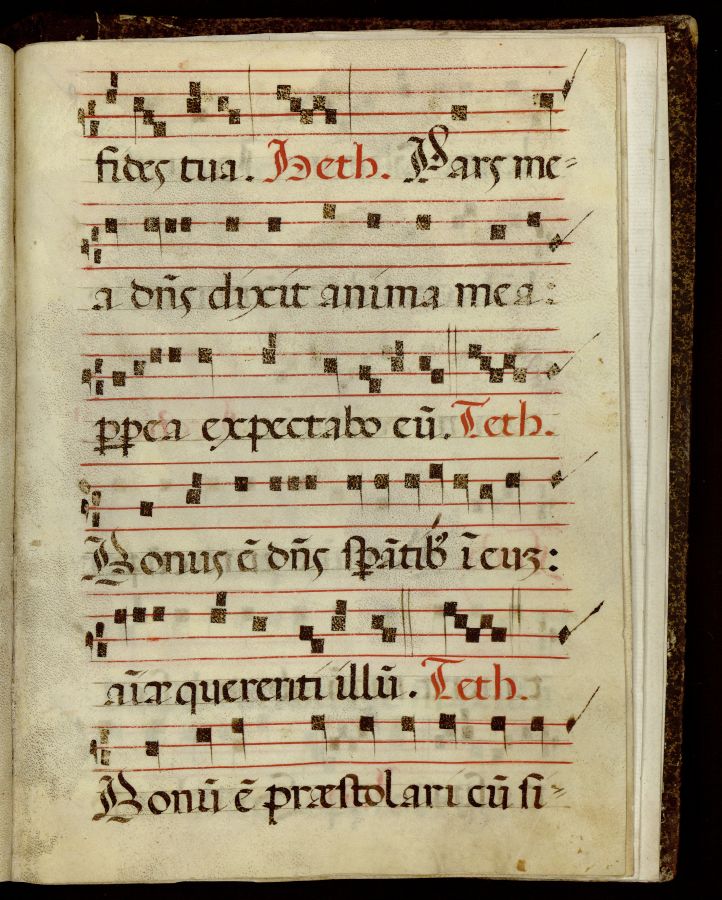 fides tua. Heth. Pars me-
a dñs dixit anima mea:
ppea expectabo eũ. Teth.
Bonus ẽ dñs spãtib ĩ euʒ:
aĩæ querenti illũ. Teth.
Bonũ ẽ præstolari cũ si-